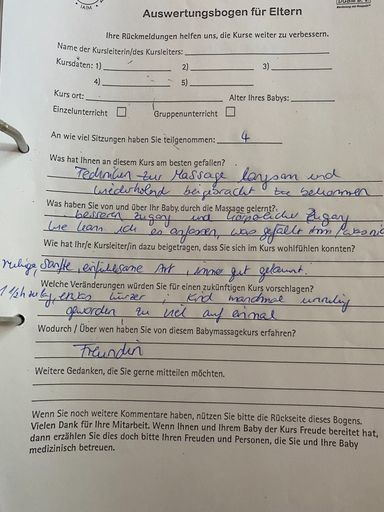 IAIM
Auswertungsbogen für Eltern
Ihre Rückmeldungen helfen uns, die Kurse weiter zu verbessern.
Name der Kursleiterin/des Kursleiters:
Kursdaten: 1) 2) 3)
4) 5)
Kurs ort: Alter Ihres Babys:
Einzelunterricht Gruppenunterricht
An wie viel Sitzungen haben Sie teilgenommen: 4
Was hat Ihnen an diesem Kurs am besten gefallen?
Techniken zur Massage langsam und
wiederholend beigebracht zu bekommen
Was haben Sie von und über Ihr Baby durch die Massage gelernt?
bessern Zugang und körperlicher Zugang
wie kann ich es anfassen, was gefällt ihm
Wie hat Ihr/e Kursleiter/in dazu beigetragen, dass Sie sich im Kurs wohlfühlen konnten?
ruhige, sanfte, einfühlsame Art, immer gut gelaunt.
Welche Veränderungen würden Sie für einen zukünftigen Kurs vorschlagen?
etwas kürzer, Kind manchmal unruhig
geworden zu viel auf einmal
Wodurch / Über wen haben Sie von diesem Babymassagekurs erfahren?
Freundin
Weitere Gedanken, die Sie gerne mitteilen möchten.
Wenn Sie noch weitere Kommentare haben, nützen Sie bitte die Rückseite dieses Bogens.
Vielen Dank für Ihre Mitarbeit. Wenn Ihnen und Ihrem Baby der Kurs Freude bereitet hat,
dann erzählen Sie dies doch bitte Ihren Freuden und Personen, die Sie und Ihre Baby
medizinisch betreuen.